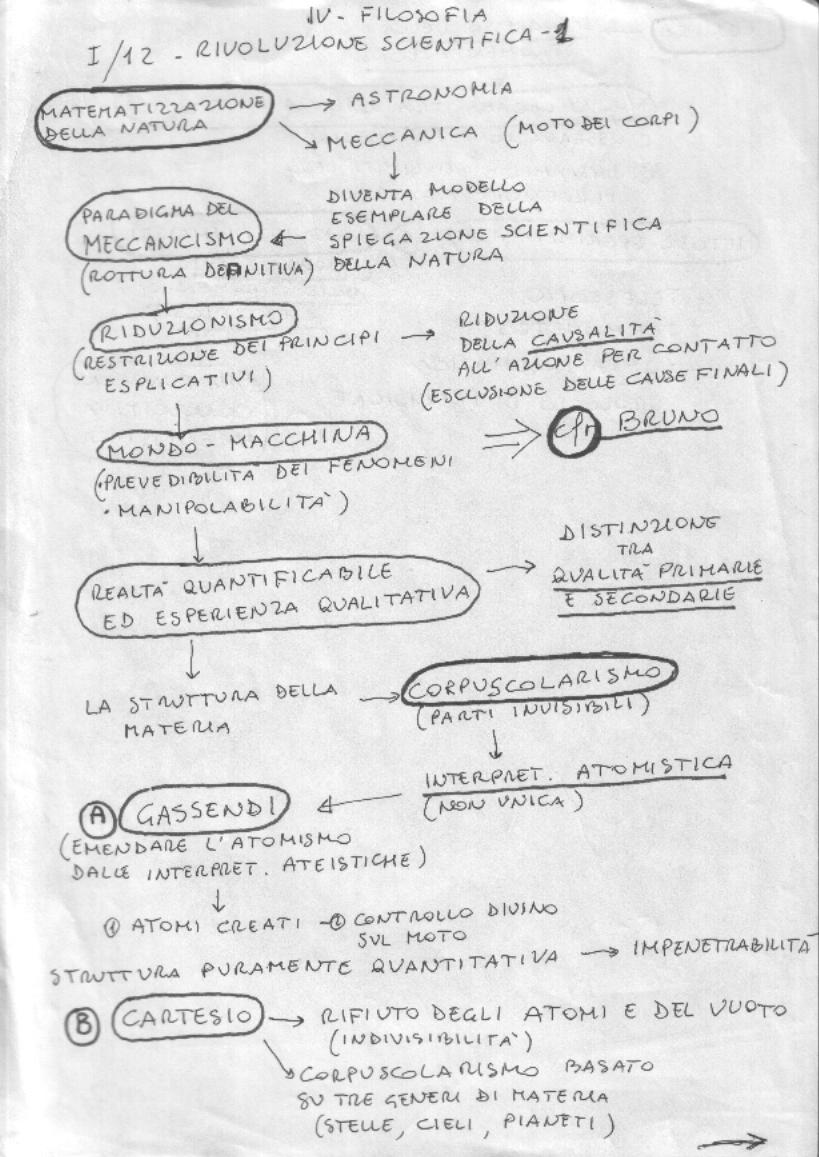 IV - FILOSOFIA
I/12 - RIVOLUZIONE SCIENTIFICA - 1
MATEMATIZZAZIONE → ASTRONOMIA
DELLA NATURA
MECCANICA (MOTO DEI CORPI)
DIVENTA MODELLO
ESEMPLARE DELLA
SPIEGAZIONE SCIENTIFICA
DELLA NATURA
PARADIGMA DEL
MECCANICISMO
(ROTTURA DEFINITIVA)
RIDUZIONISMO
(RESTRIZIONE DEI PRINCIPI
ESPLICATIVI)
→ RIDUZIONE
DELLA CAUSALITÀ
ALL'AZIONE PER CONTATTO
(ESCLUSIONE DELLE CAUSE FINALI)
MONDO - MACCHINA
(• PREVEDIBILITÀ DEI FENOMENI
• MANIPOLABILITÀ)
⇒ cfr BRUNO
REALTÀ QUANTIFICABILE
ED ESPERIENZA QUALITATIVA
→ DISTINZIONE
TRA
QUALITÀ PRIMARIE
E SECONDARIE
LA STRUTTURA DELLA
MATERIA
→ CORPUSCOLARISMO
(PARTI INVISIBILI)
INTERPRET. ATOMISTICA
(NON UNICA)
A GASSENDI
(EMENDARE L'ATOMISMO
DALLE INTERPRET. ATEISTICHE)
① ATOMI CREATI - ② CONTROLLO DIVINO
SUL MOTO
STRUTTURA PURAMENTE QUANTITATIVA → IMPENETRABILITÀ
B CARTESIO → RIFIUTO DEGLI ATOMI E DEL VUOTO
(INDIVISIBILITÀ)
CORPUSCOLARISMO BASATO
SU TRE GENERI DI MATERIA
(STELLE, CIELI, PIANETI)
→